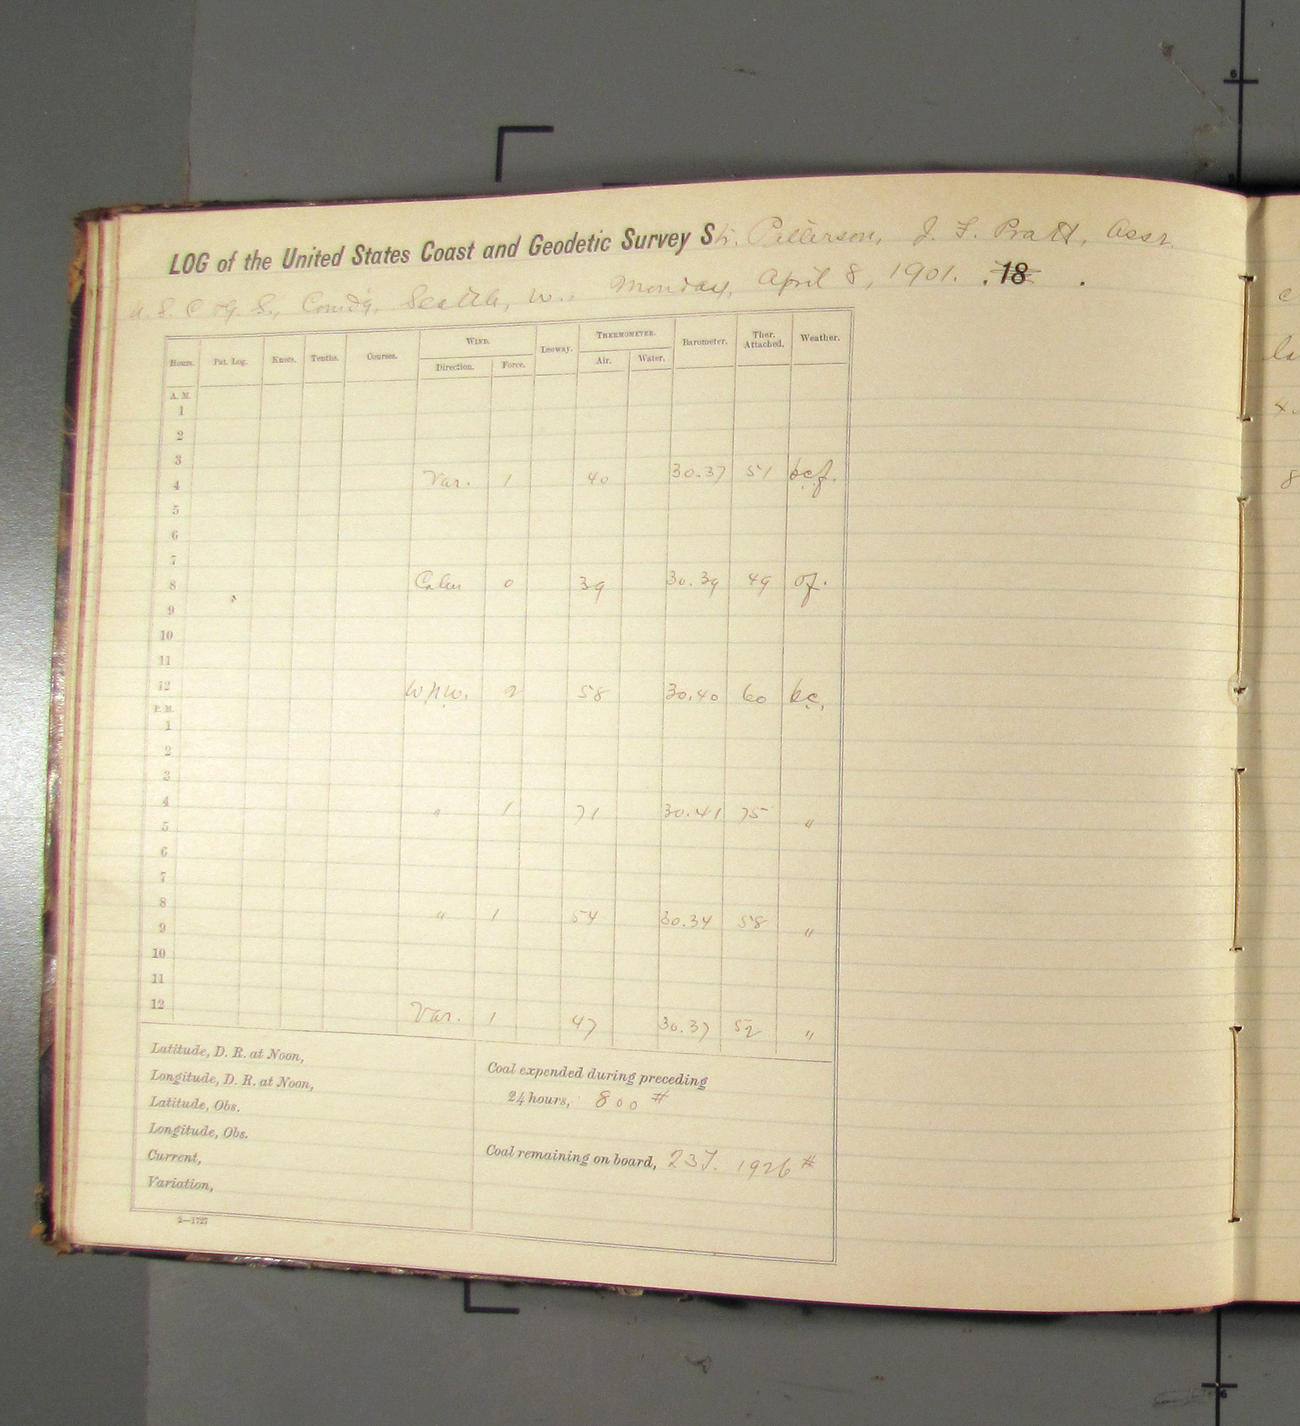 LOG of the United States Coast and Geodetic Survey Str. Patterson, J. F. Pratt, Asst.
U. S. C. & G. S., Comd'g, Seattle, W., Monday, April 8, 1901. , 18 .
Hours. Pat. Log. Knots. Tenths. Courses. WIND. Leeway. THERMOMETER. Barometer. Ther. Attached. Weather.
Direction. Force. Air. Water.
A. M.
1
2
3
4 Var. 1 40 30.37 51 bcf.
5
6
7
8 Calm 0 39 30.39 49 of.
9
10
11
12 WNW. 2 58 30.40 60 bc.
P. M.
1
2
3
4 " 1 71 30.41 75 "
5
6
7
8 " 1 54 30.34 58 "
9
10
11
12 Var. 1 47 30.37 52 "
Latitude, D. R. at Noon,
Longitude, D. R. at Noon,
Latitude, Obs.
Longitude, Obs.
Current,
Variation,
Coal expended during preceding
24 hours, 800 #
Coal remaining on board, 23T. 1926 #
2—1727